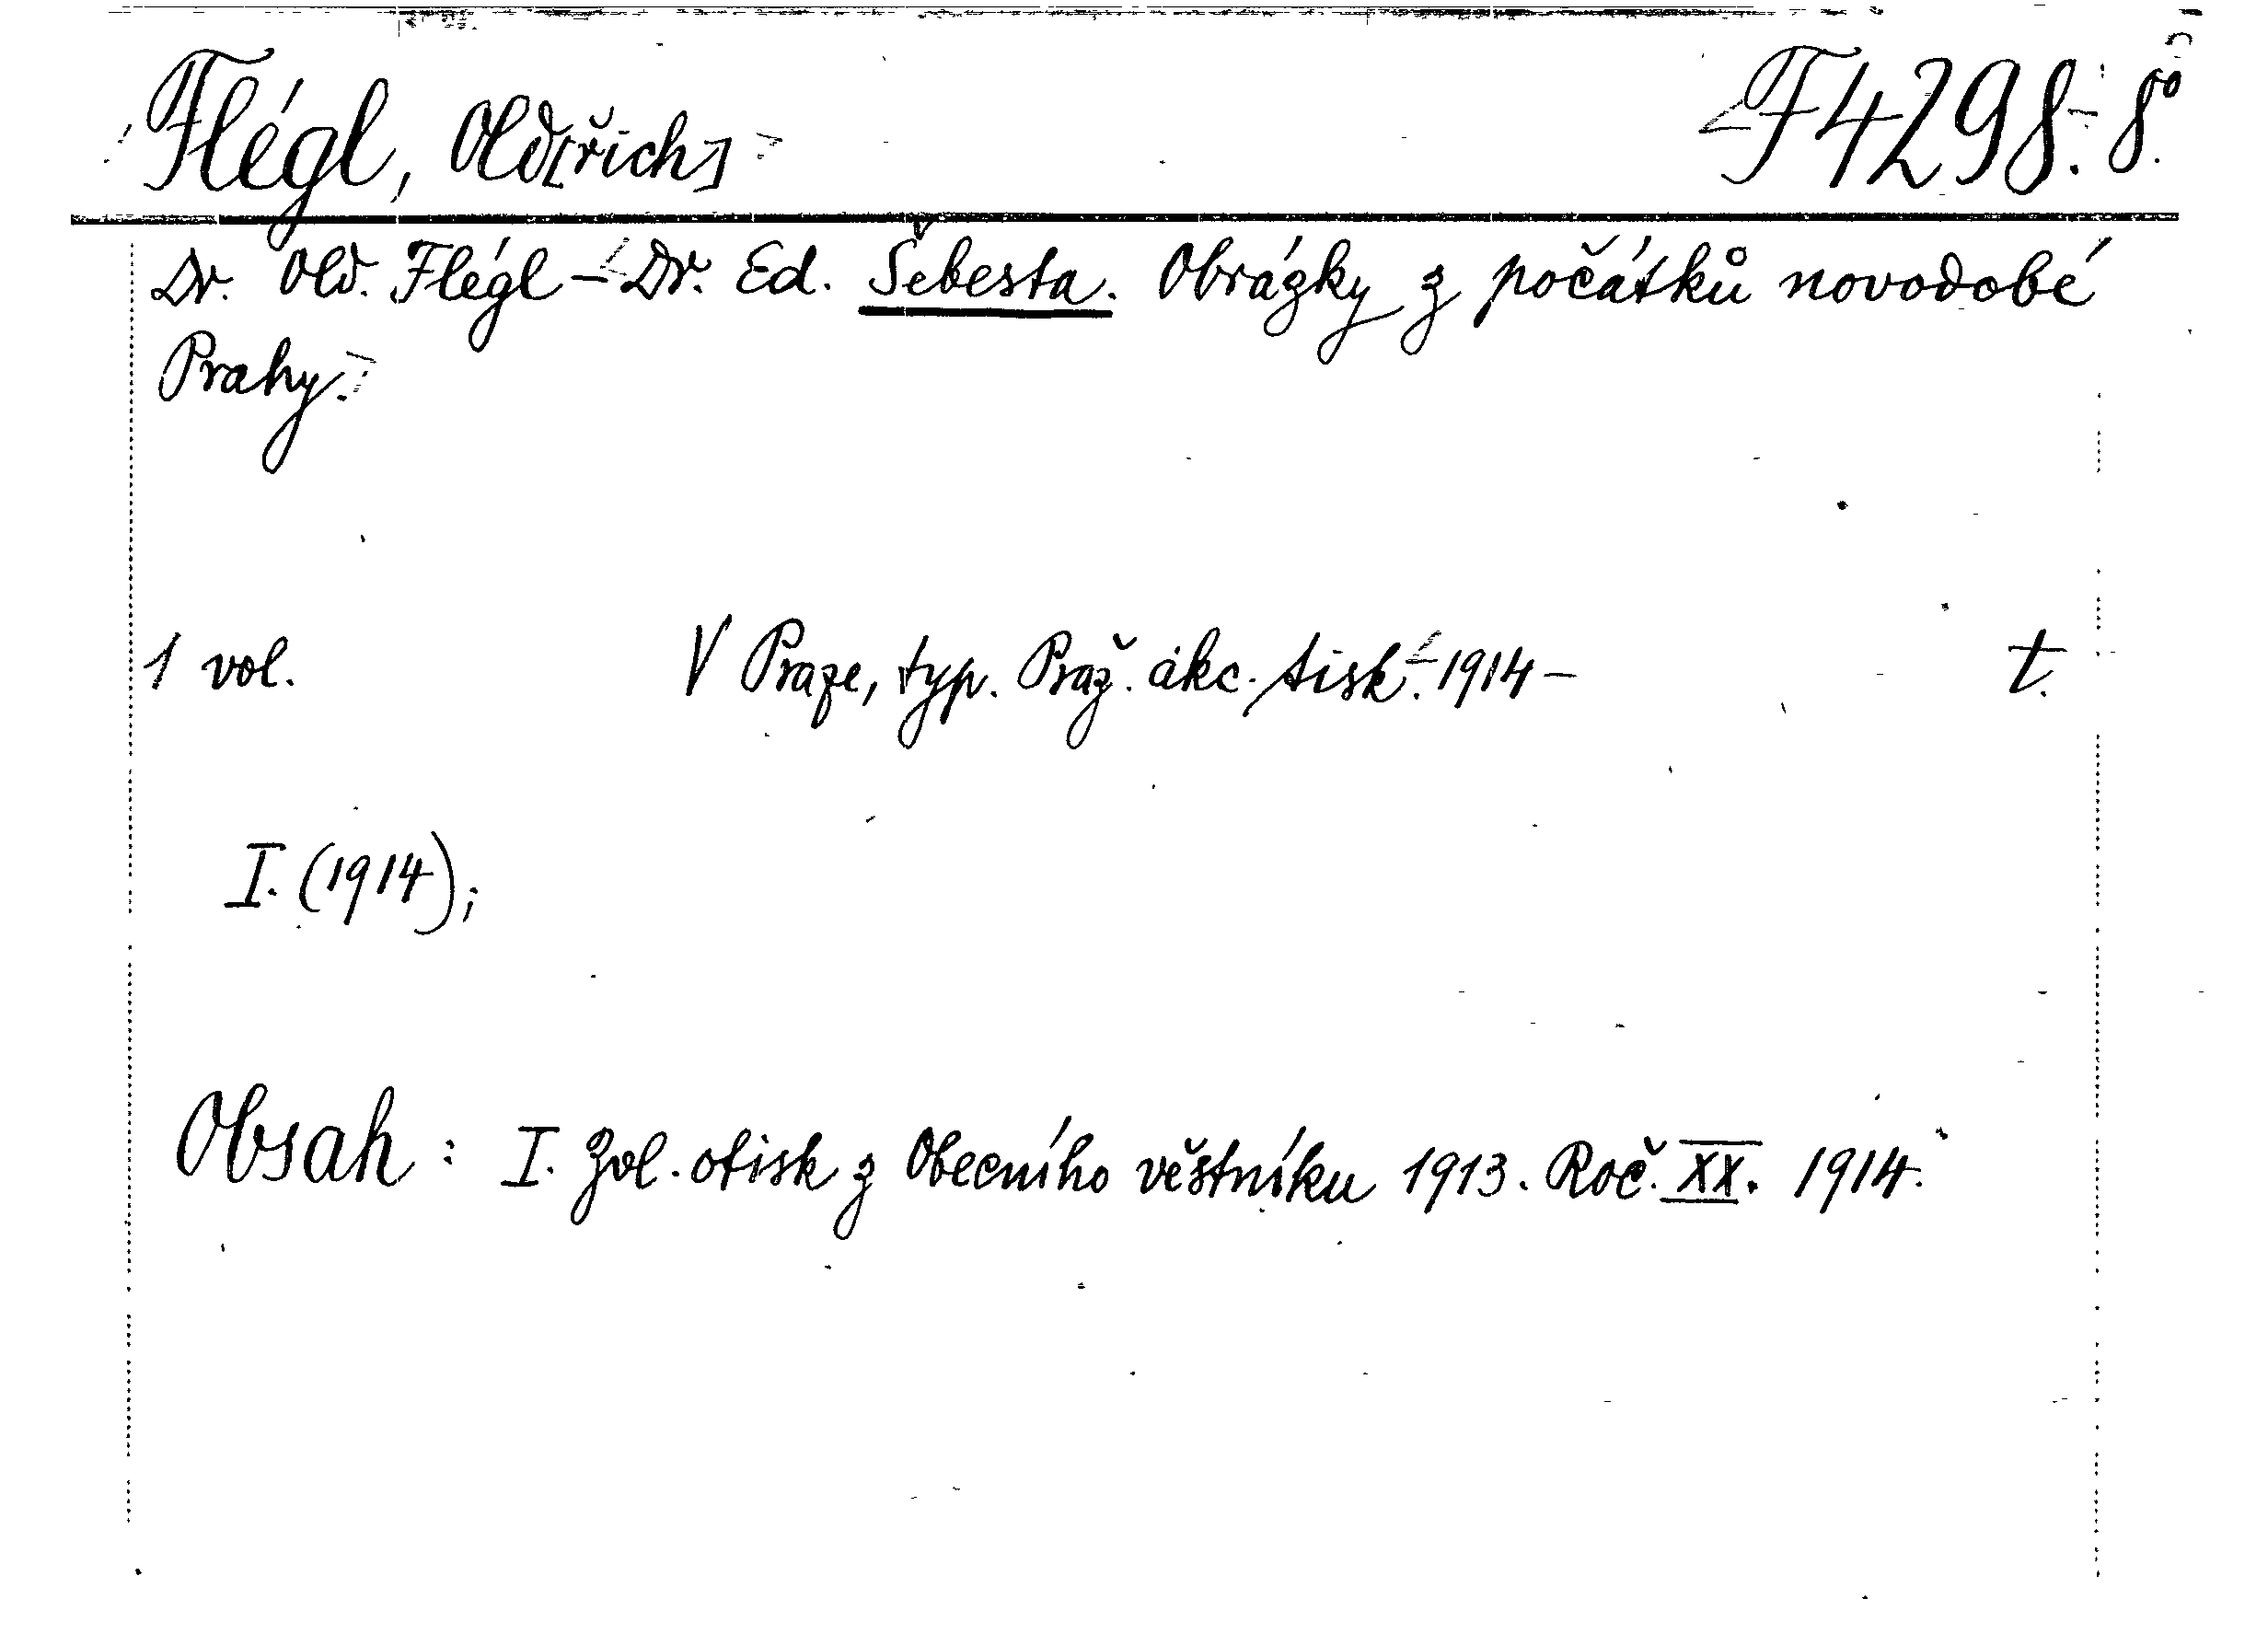 Flégl, Old[řich] F 4298. 8°.
Dr. Old. Flégl - Dr. Ed. Šebesta. Obrázky z počátků novodobé
Prahy.
1 vol. V Praze, typ. Praž. akc. tisk. 1914 - t.
I. (1914);
Obsah: I. Zvl. otisk z Obecního věstníku 1913. Roč. XX. 1914.